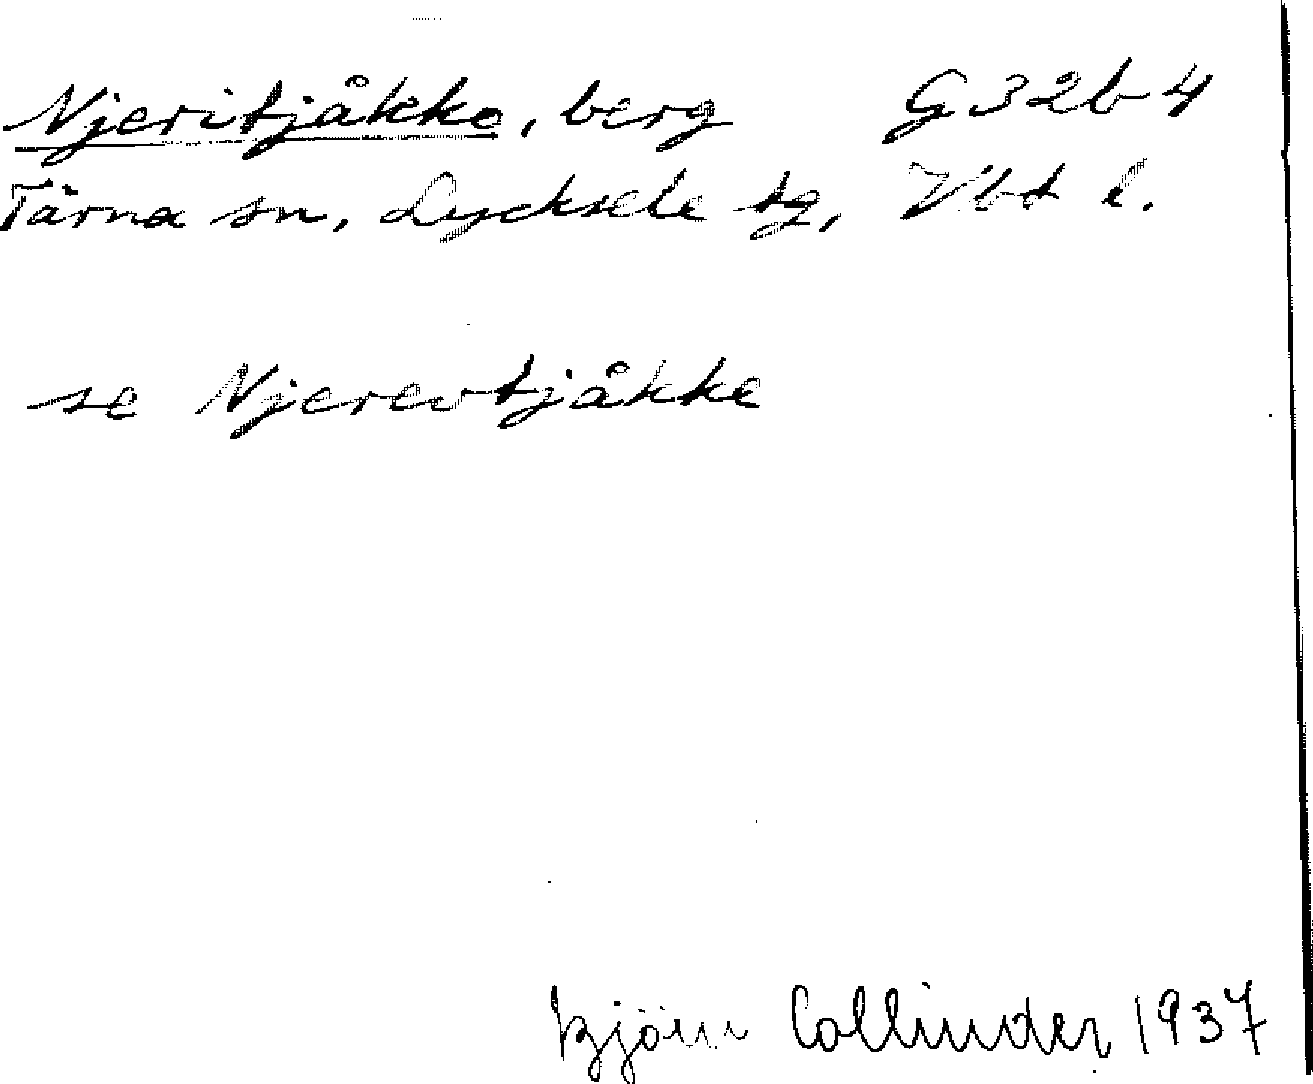 Njeritjåkko, berg G32b4
Tärna sn, Lycksele tg, Vbt l.
se Njerevtjåkke
Björn Collinder 1937